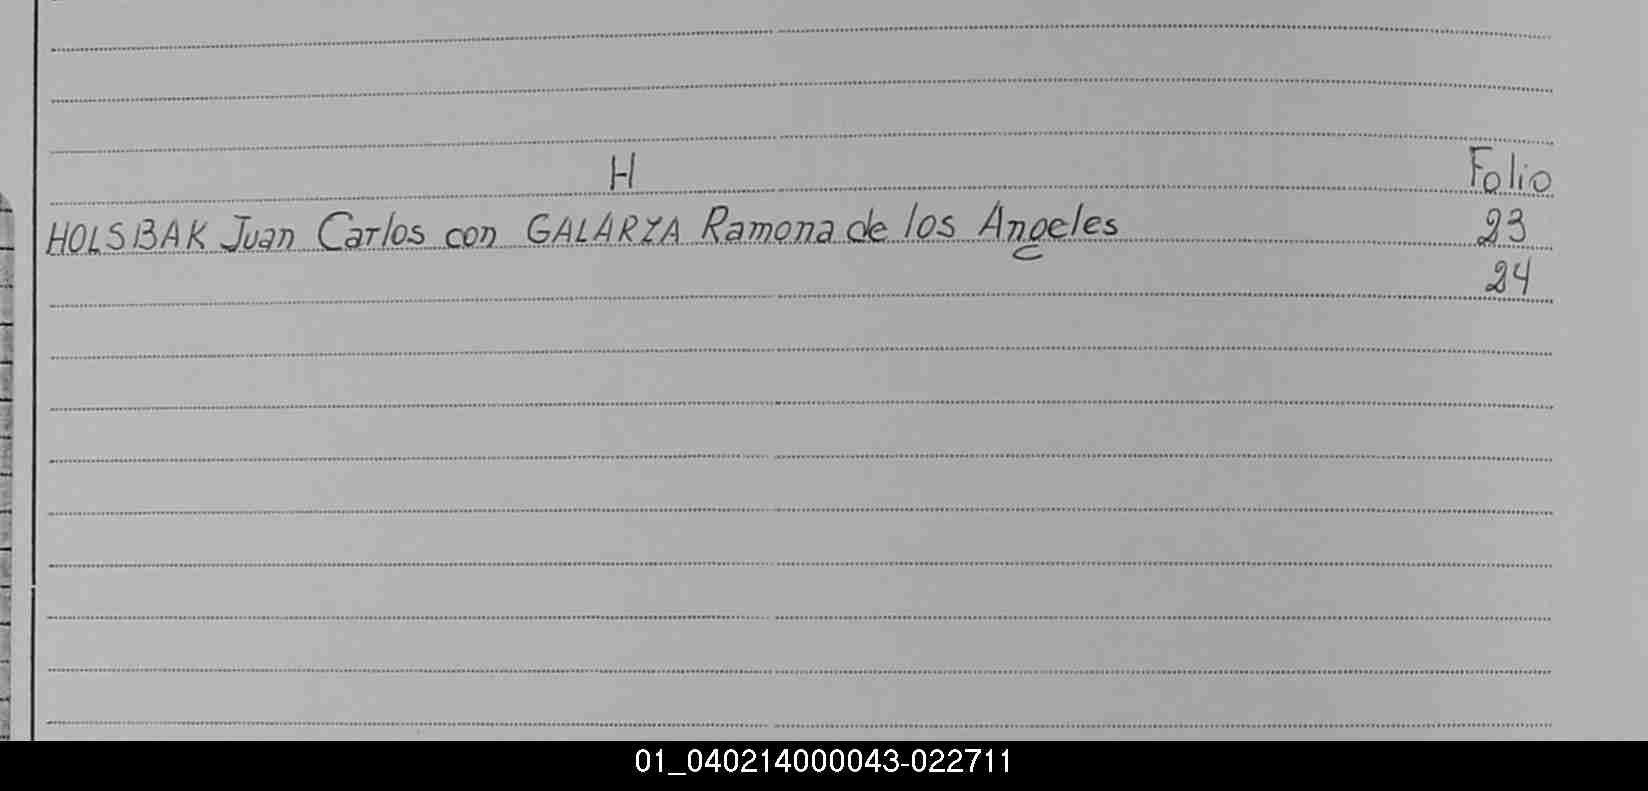 H Folio
HOLSBAK Juan Carlos con GALARZA Ramona de los Angeles 23
24
01_040214000043-022711